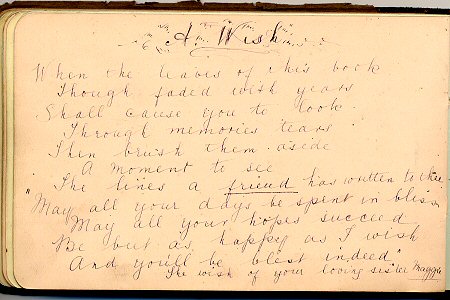 A Wish
When the leaves of this book
Though faded with years
Shall cause you to look
Through memories tears
Then brush them aside
A moment to see
The lines a friend has written to thee
"May all your days be spent in bliss
May all your hopes succeed
Be but as happy as I wish
And you'll be blest indeed"
The wish of your loving sister Maggie